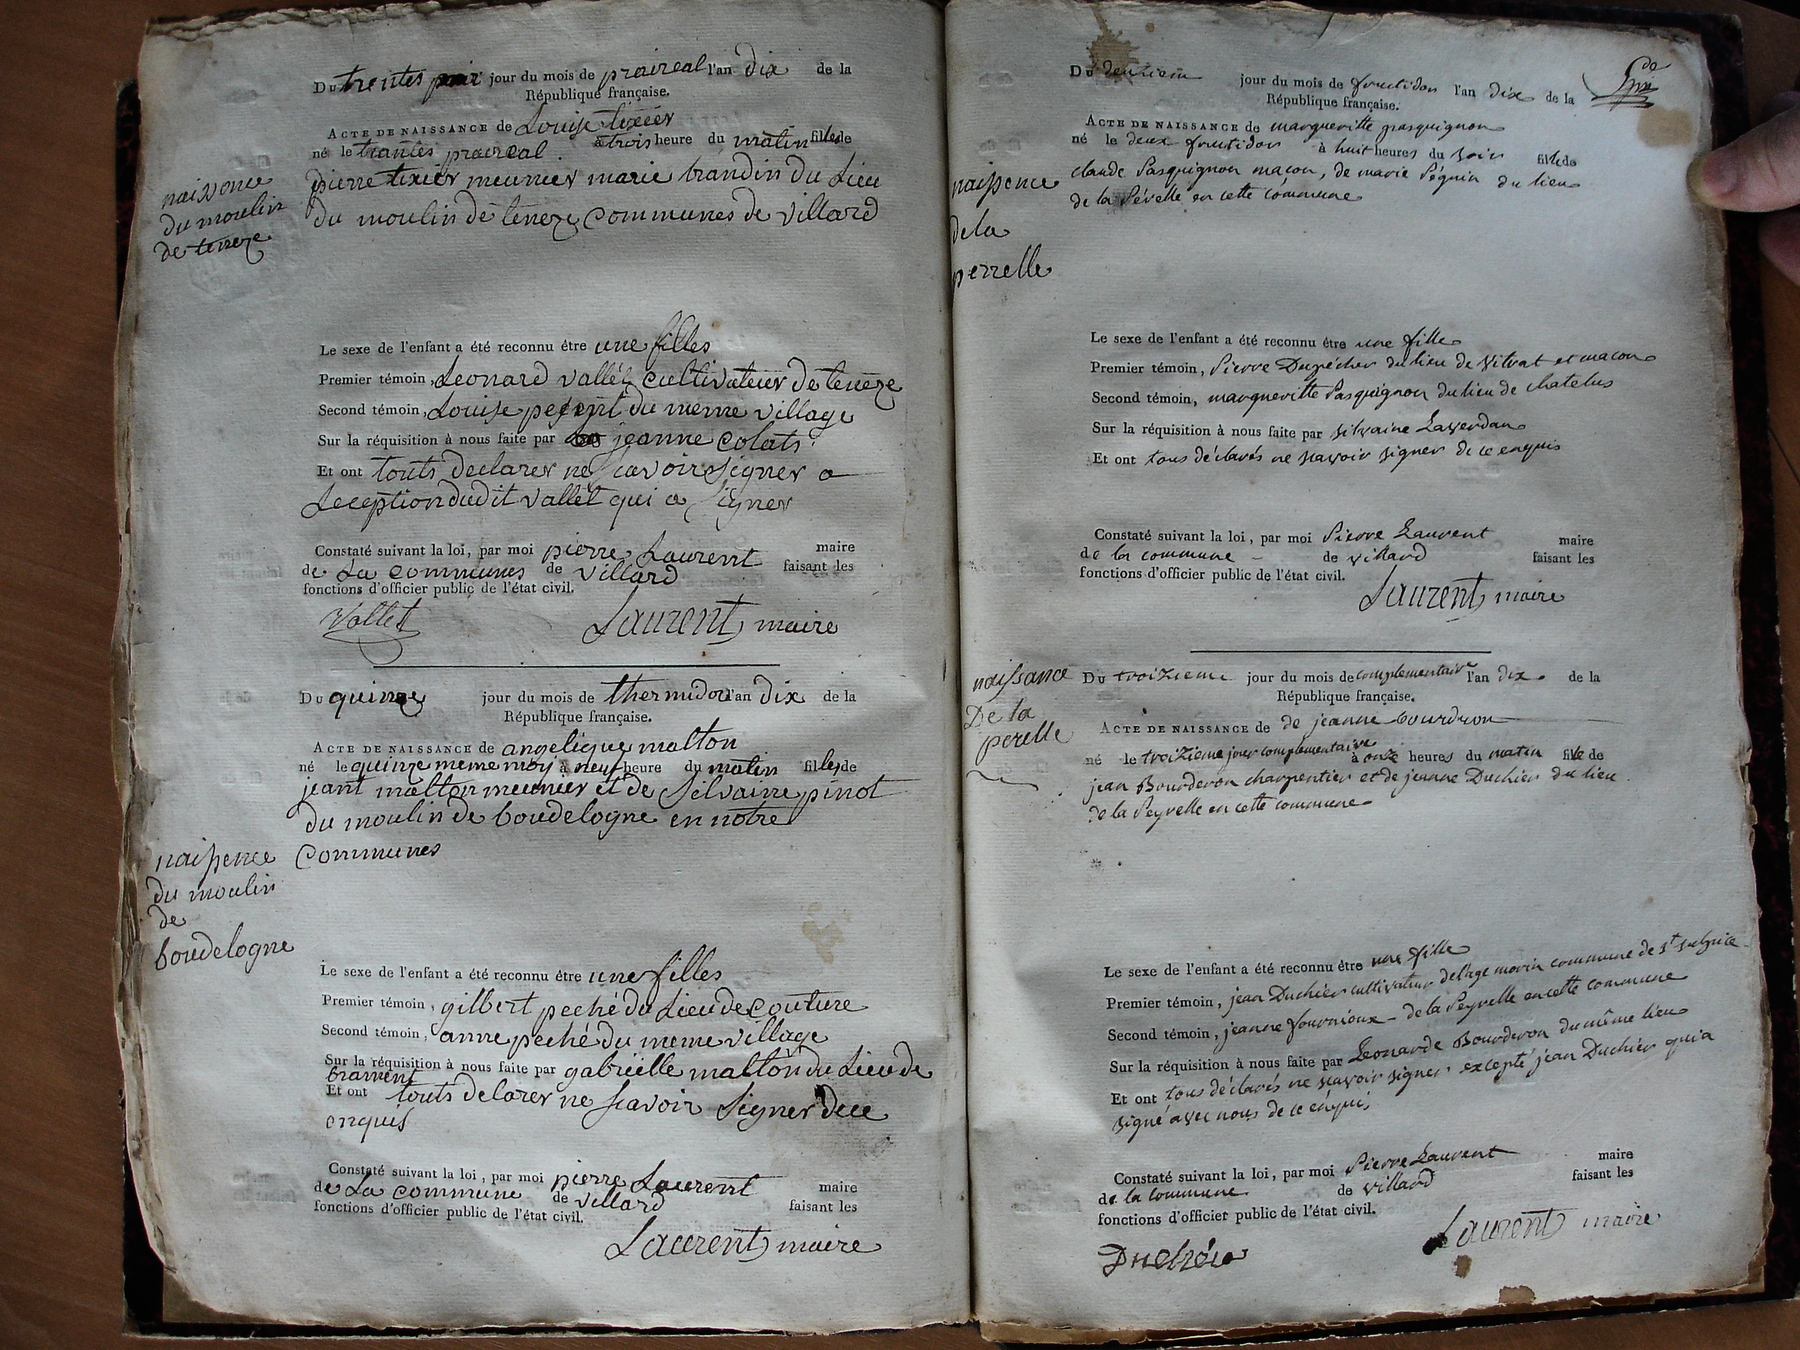 Du trentes jour du mois de praireal l'an dix de la
République française.
ACTE DE NAISSANCE de Louise tixier
né le trantes praireal à trois heure du matin fille de
pierre texier meunier marie trandin du Lieu
du moulin de teneze communes de villard
naissence
du moulin
de teneze
Le sexe de l'enfant a été reconnu être une filles
Premier témoin, Leonard vallét cultivateur de teneze
Second témoin, Louise du meme village
Sur la réquisition à nous faite par jeanne colats
Et ont touts declarer ne scavoir signer a
Leception dudit vallet qui a signer
Constaté suivant la loi, par moi pierre Laurent maire
de La communes de villard faisant les
fonctions d'officier public de l'état civil.
Vallet Laurent maire
Du quinze jour du mois de thermidor l'an dix de la
République française.
ACTE DE NAISSANCE de angelique malton
né le quinze meme moy à neuf heure du matin fille de
jeant malton meunier et de Silvaine pinot
du moulin de boudelogne en notre
communes
naissence
du moulin
de
boudelogne
Le sexe de l'enfant a été reconnu être une filles
Premier témoin, gilbert peché du Lieu de couture
Second témoin, anne peché du meme village
Sur la réquisition à nous faite par gabrielle malton du Lieu de
brament
Et ont touts delarer ne scavoir signer dece
enquis
Constaté suivant la loi, par moi pierre Laurent maire
de La commune de villard faisant les
fonctions d'officier public de l'état civil.
Laurent maire
Du deuxiem jour du mois de fructidor l'an dix de la
République française.
ACTE DE NAISSANCE de margueritte pasquignon
né le deux fructidor à huit heures du soir fille de
claude Pasquignon maçon, de marie Péguin du lieu
de la Pérelle en cette commune
naissence
de la
perrelle
Le sexe de l'enfant a été reconnu être une fille
Premier témoin, Pierre Dupécher du lieu de Vitrat et macon
Second témoin, margueritte Pasquignon du lieu de chatelus
Sur la réquisition à nous faite par silvaine Laverdan
Et ont tous déclarés ne savoir signer de ce enquis
Constaté suivant la loi, par moi Pierre Laurent maire
de la commune de villard faisant les
fonctions d'officier public de l'état civil.
Laurent maire
naissance
De la
perelle
Du troizieme jour du mois de complementaire l'an dix de la
République française.
ACTE DE NAISSANCE de de jeanne bourdron
né le troizieme jour complementaire à onze heures du matin fille de
jean Bourderon charpentier et de jeanne Duchier du lieu
de la Peyrelle en cette commune
Le sexe de l'enfant a été reconnu être une fille
Premier témoin, jean Duchier cultivateur de lage morin commune de st sulpice
Second témoin, jeanne fournioux de la Peyrelle en cette commune
Sur la réquisition à nous faite par Leonarde Bourderon du même lieu
Et ont tous déclarés ne savoir signer excepté jean Duchier qui a
signé avec nous de ce enquis
Constaté suivant la loi, par moi Pierre Laurent maire
de la commune de villard faisant les
fonctions d'officier public de l'état civil.
Laurent maire